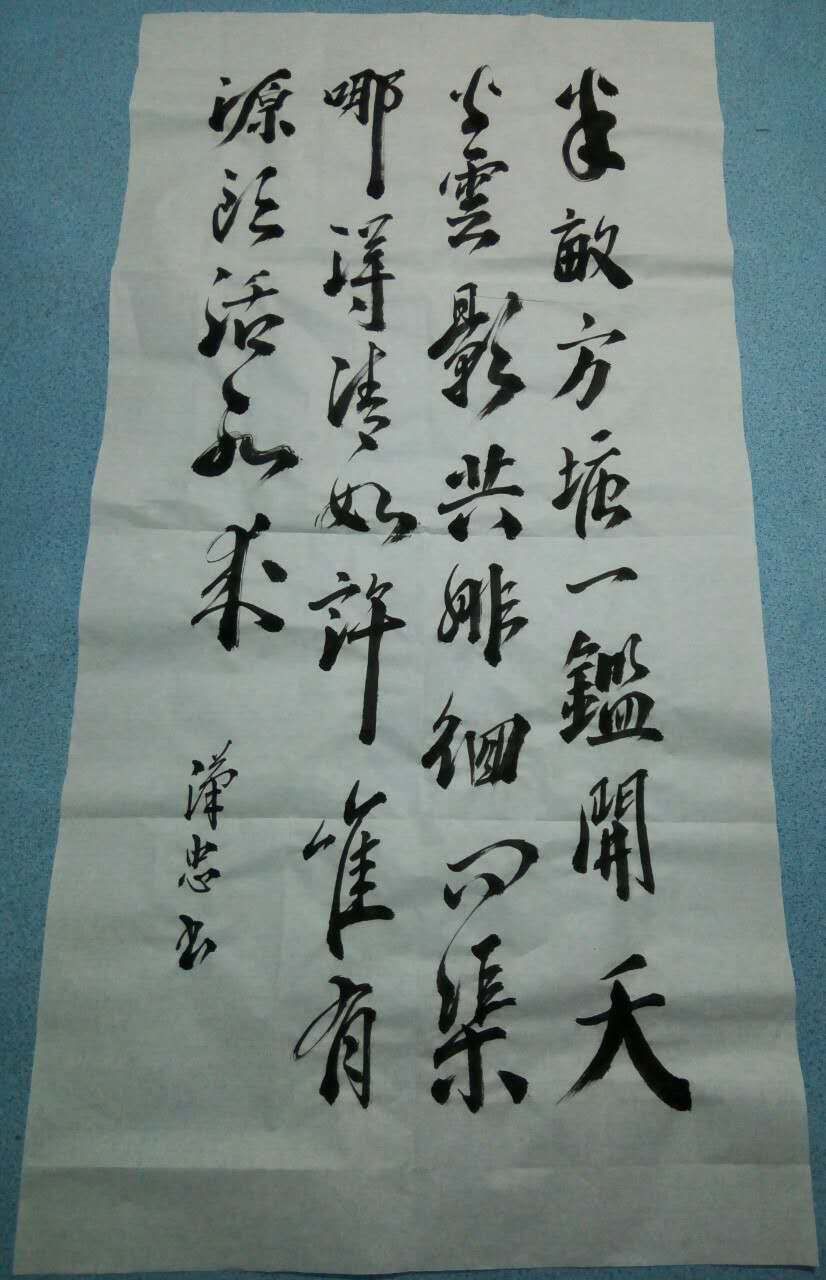 半畝方塘一鑑開天
光雲影共徘徊問渠
哪得清如許惟有
源頭活水來
漢忠书